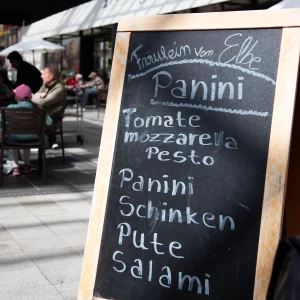 Fräulein vom Elbe
Panini
Tomate
mozzarella
Pesto
Panini
Schinken
Pute
Salami